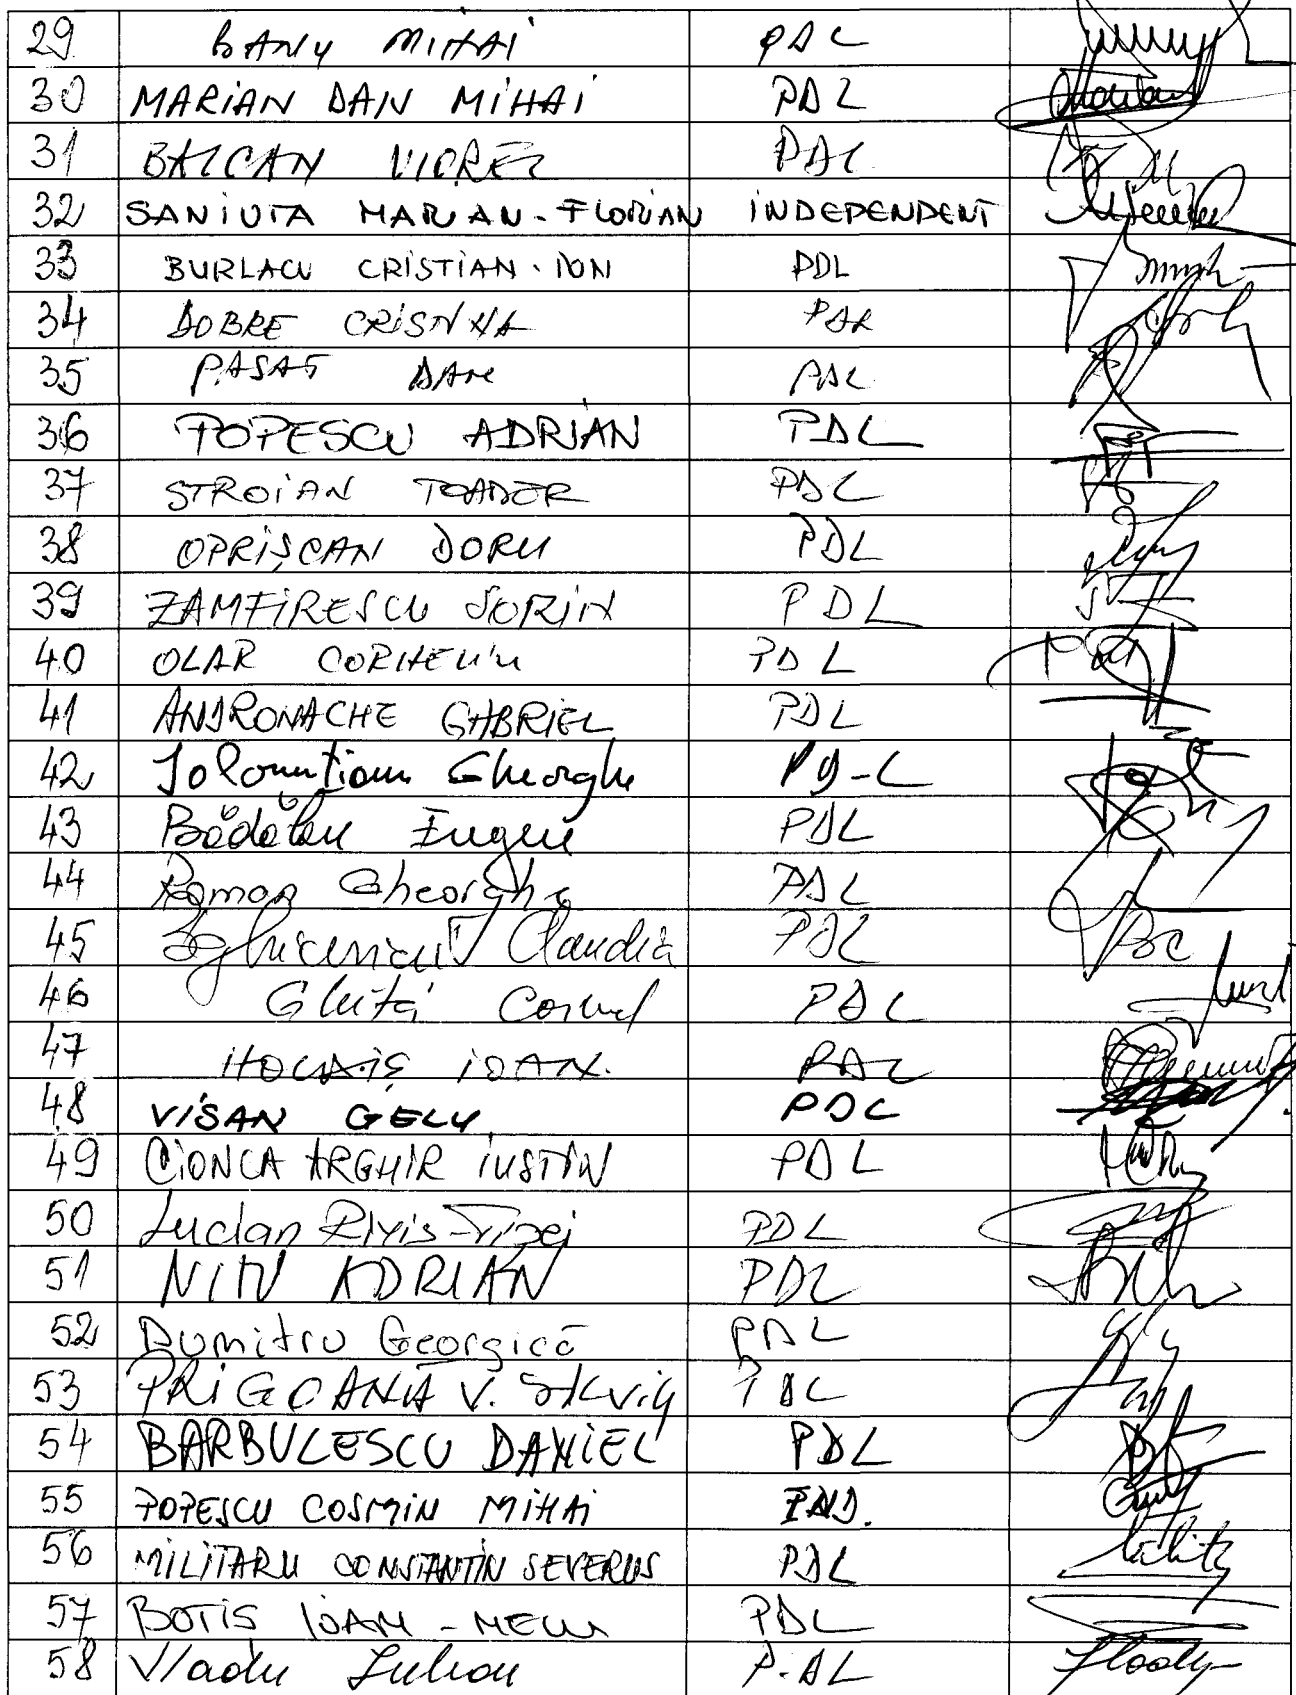 29 BANU MIHAI PDL
30 MARIAN DAN MIHAI PDL
31 BALCAN VIOREL PDL
32 SANIUTA MARIAN-FLORIAN INDEPENDENT
33 BURLACU CRISTIAN-ION PDL
34 DOBRE CRISTINA PDL
35 PASAT DAN PDL
36 POPESCU ADRIAN PDL
37 STROIAN TOADER PDL
38 OPRIȘCAN DORU PDL
39 ZAMFIRESCU SORIN PDL
40 OLAR CORNELIU PDL
41 ANDRONACHE GABRIEL PDL
42 Ialomițianu Gheorghe PD-L
43 Bădălan Eugen PDL
44 Roman Gheorghe PDL
45 Claudia PDL
46 Ghiță Cornel PDL
47 IOAN. PDL
48 VISAN GELU PDL
49 CIONCA ARGHIR IUSTIN PDL
50 Lucian Riviș-Tipei PDL
51 NITU ADRIAN PDL
52 Dumitru Georgică PDL
53 PRIGOANĂ V. Silviu PDL
54 BARBULESCU DANIEL PDL
55 POPESCU COSMIN MIHAI IND.
56 MILITARU CONSTANTIN SEVERUS PDL
57 BOTIS IOAN-NELU PDL
58 Vladu Iulian P.DL